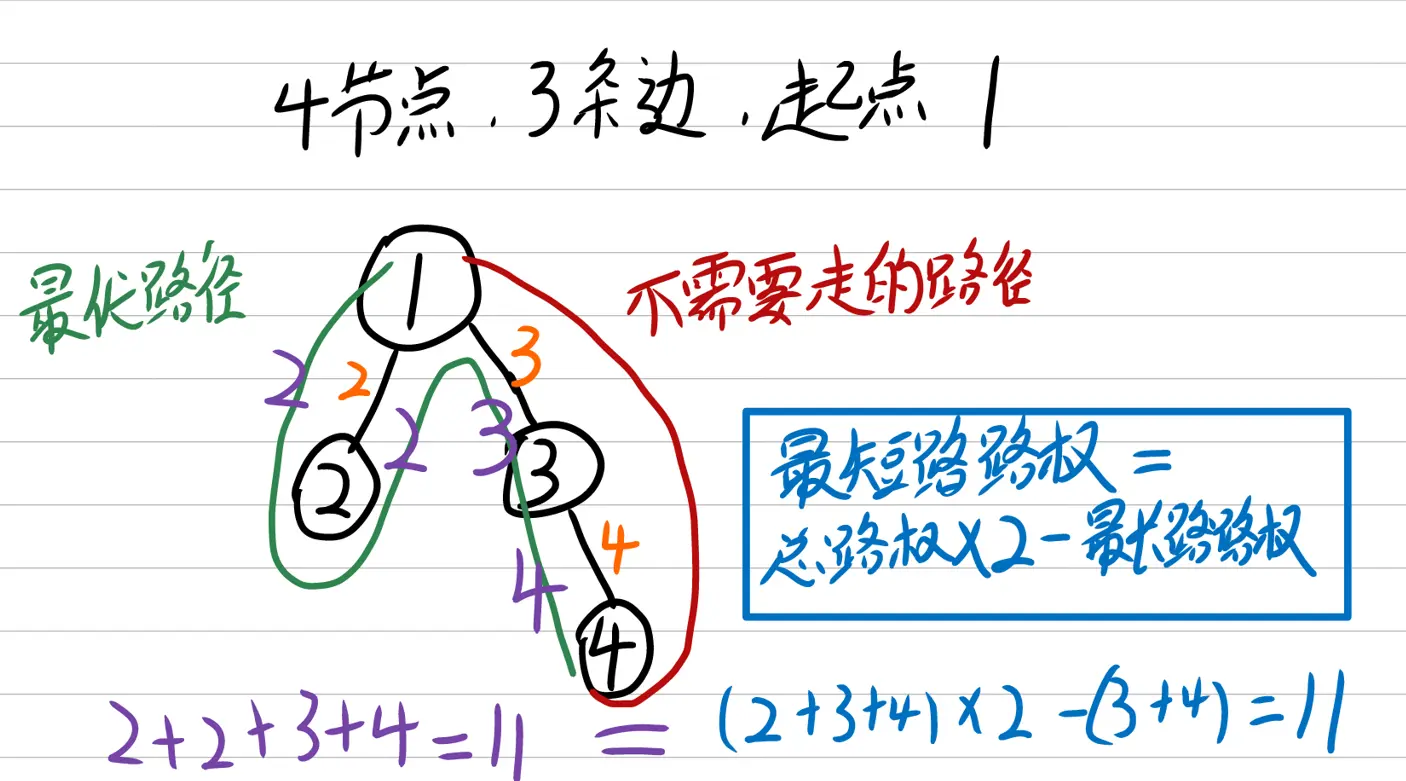 4节点，3条边，起点 1
最优路径
不需要走的路径
1
2
2
3
2
2
3
2
3
4
4
4
最短路路权 =
总路权×2-最长路路权
2+2+3+4=11 = (2+3+4)×2-(3+4)=11